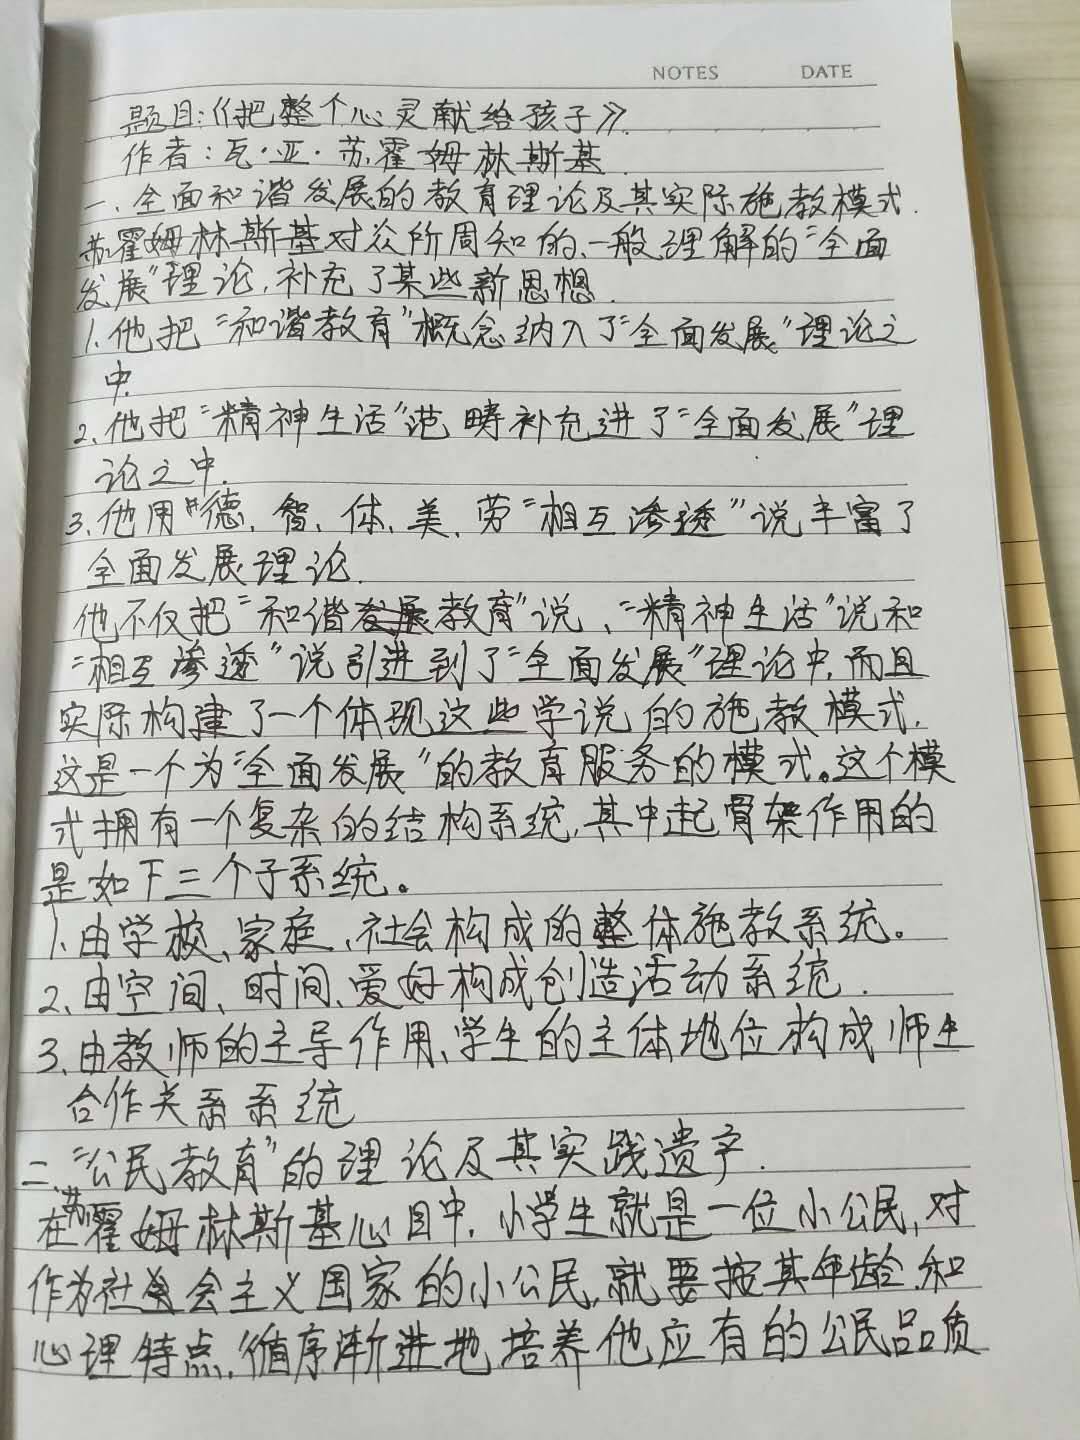 NOTES DATE
题目:《把整个心灵献给孩子》.
作者:瓦·亚·苏霍姆林斯基.
一、全面和谐发展的教育理论及其实际施教模式.
苏霍姆林斯基对众所周知的、一般理解的“全面
发展”理论,补充了某些新思想.
1.他把“和谐教育”概念纳入了“全面发展”理论之
中.
2、他把“精神生活”范畴补充进了“全面发展”理
论之中.
3、他用“德、智、体、美、劳“相互渗透”说丰富了
全面发展理论.
他不仅把“和谐教育”说、“精神生活”说和
“相互渗透”说引进到了“全面发展”理论中,而且
实际构建了一个体现这些学说的施教模式.
这是一个为“全面发展”的教育服务的模式。这个模
式拥有一个复杂的结构系统,其中起骨架作用的
是如下三个子系统。
1、由学校、家庭、社会构成的整体施教系统。
2、由空间、时间、爱好构成创造活动系统.
3、由教师的主导作用、学生的主体地位构成师生
合作关系系统
二、“公民教育”的理论及其实践遗产.
在苏霍姆林斯基心目中,小学生就是一位小公民,对
作为社会主义国家的小公民,就要按其年龄和
心理特点,循序渐进地培养他应有的公民品质